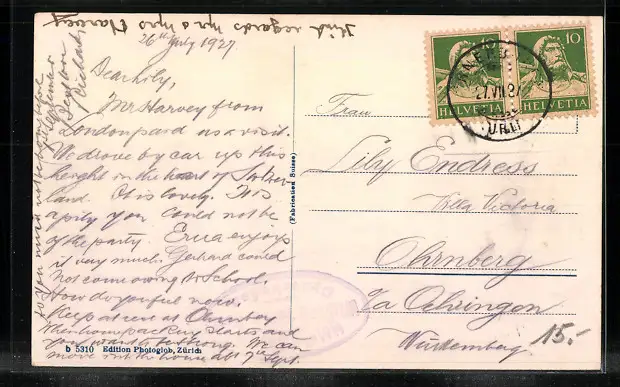 Kind regards to Mrs
26th July 1927
Dear Lily,
Mr Harvey from
London paid us a visit.
We drove by car up this
height in the heart of Switzer
land. It is lovely. It is
a pity you could not be
of the party. Erica enjoys
it very much. Gerhard could
not come owing to School.
How do you feel now.
Keep at rest at Ohrnberg
when home packing starts and
you want to be strong. We can
move into the house abt 7th Sept.
b 5310 Edition Photoglob, Zürich
(Fabrication Suisse)
10
10
HELVETIA
HELVETIA
27.VII.27
(URI)
Frau
Lily Endress
Villa Victoria
Ohrnberg
Oehringen
Württemberg
15.-